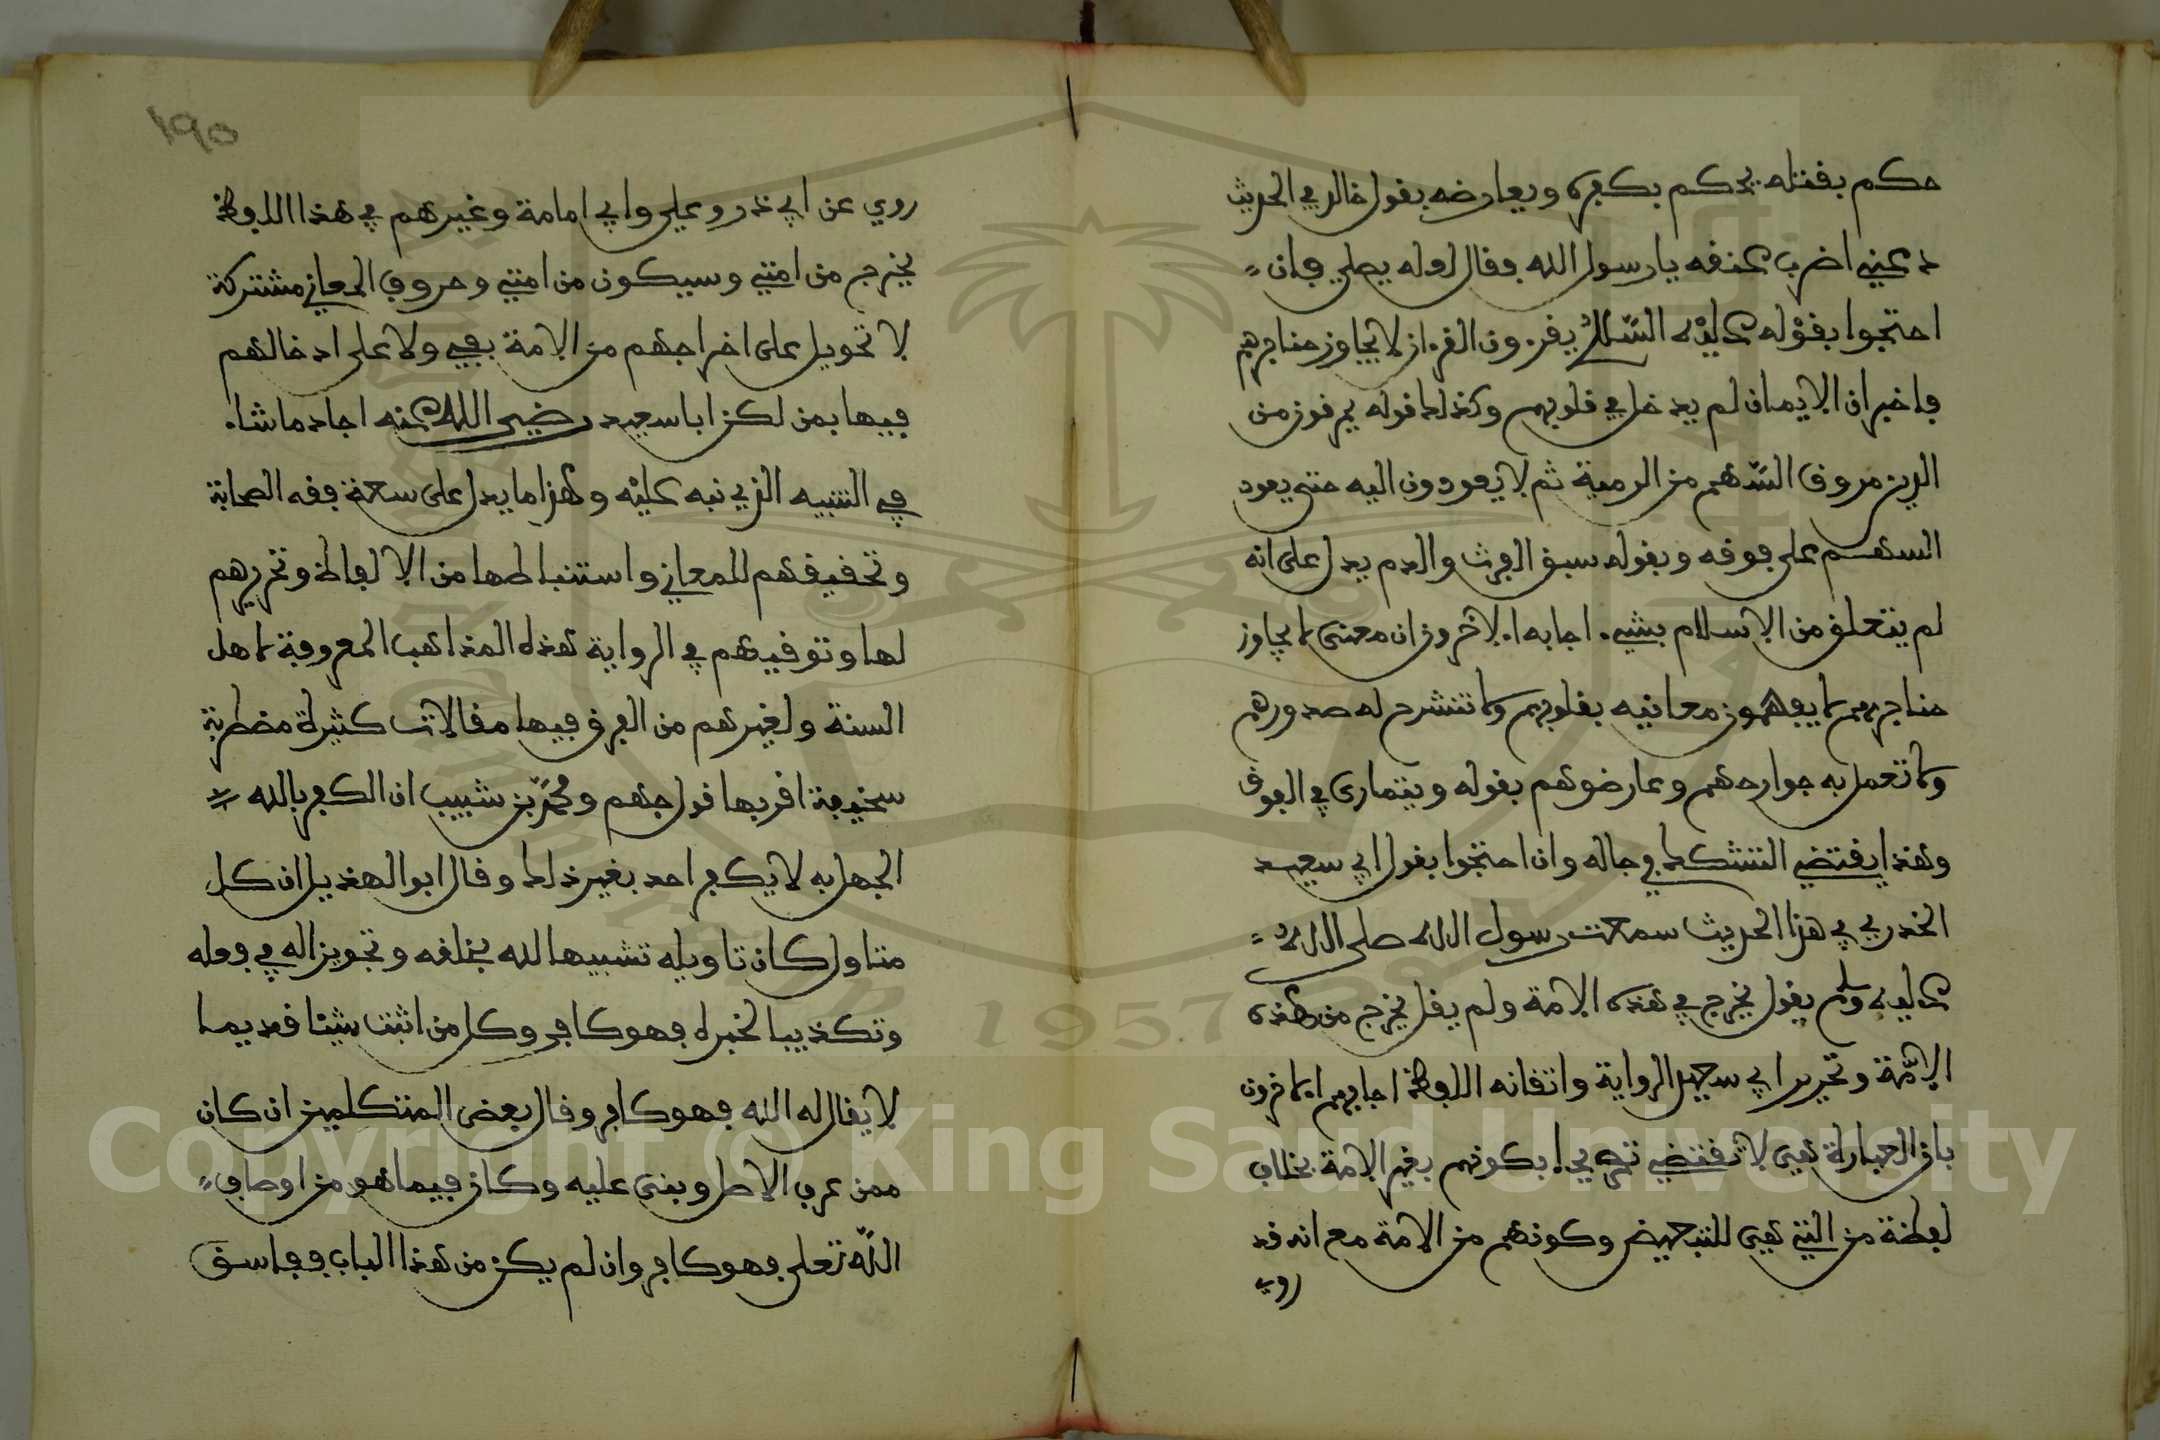 حكم بقتله يحكم بكفره ويعارضه بقول خالد في الحديث
دعني اضرب عنقه يا رسول الله فقال لعله يصلي فان
احتجوا بقوله عليه السلام يقرءون القرءان لا يجاوز حناجرهم
فاخبر ان الايمان لم يدخل في قلوبهم وكذلك قوله يمرقون من
الدين مروق السهم من الرمية ثم لا يعودون اليه حتى يعود
السهم على فوقه وبقوله سبق الفرث والدم يدل على انه
لم يتعلق من الاسلام بشيء اجابه الاخرون ان معنى لا يجاوز
حناجرهم لا يفهمون معانيه بقلوبهم ولا تنشرح له صدورهم
ولا تعمل به جوارحهم وعارضوهم بقوله ويتمارى في الفوق
وهذا يقتضي التشكك في حاله وان احتجوا بقول ابي سعيد
الخدري في هذا الحديث سمعت رسول الله صلى الله
عليه وسلم يقول يخرج في هذه الامة ولم يقل يخرج من هذه
الامة وتحرير ابي سعيد الرواية واتقانه اللفظ اجابهم الاخرون
بان العبارة بفي لا تقتضي تصريحا بكونهم بغير الامة بخلاف
لفظة من التي هي للتبعيض وكونهم من الامة مع انه قد
روي
١٩٥
روي عن ابي ذر وعلي وابي امامة وغيرهم في هذا اللفظ
يخرج من امتي وسيكون من امتي وحروف المعاني مشتركة
لا تحويل على اخراجهم من الامة بفي ولا على ادخالهم
فيها بمن لكن ابا سعيد رضي الله عنه اجاد ما شاء
في التنبيه الذي نبه عليه وهذا ما يدل على سعة فقه الصحابة
وتحقيقهم للمعاني واستنباطها من الالفاظ وتحريرهم
لها وتوقيهم في الرواية هذه المذاهب المعروفة لاهل
السنة ولغيرهم من الفرق فيها مقالات كثيرة مضطربة
سخيفة اقربها قول جهم ومحمد بن شبيب ان الكفر بالله
الجهل به لا يكفر احد بغير ذلك وقال ابو الهذيل ان كل
متاول كان تاويله تشبيها لله بخلقه وتجويزا له في فعله
وتكذيبا لخبره فهو كافر وكل من اثبت شيئا قديما
لا يقال له الله فهو كافر وقال بعض المتكلمين ان كان
ممن عرف الاصل وبنى عليه وكان فيما هو من اوصاف
الله تعلى فهو كافر وان لم يكن من هذا الباب ففاسق
Copyright © King Saud University
1957